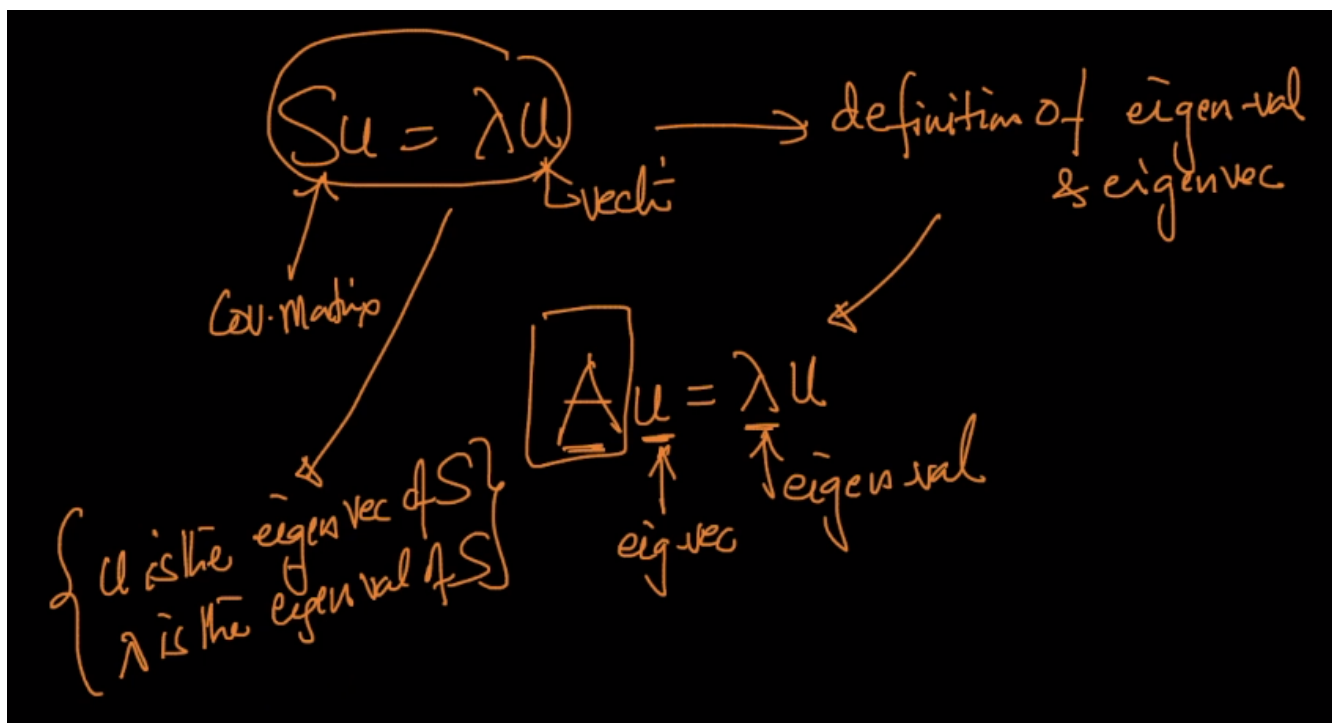 Su = λu → definition of eigen-val
& eigenvec
Cov. Matrix
A u = λ u
eigen val
eig vec
{ u is the eigen vec of S }
λ is the eigen val of S